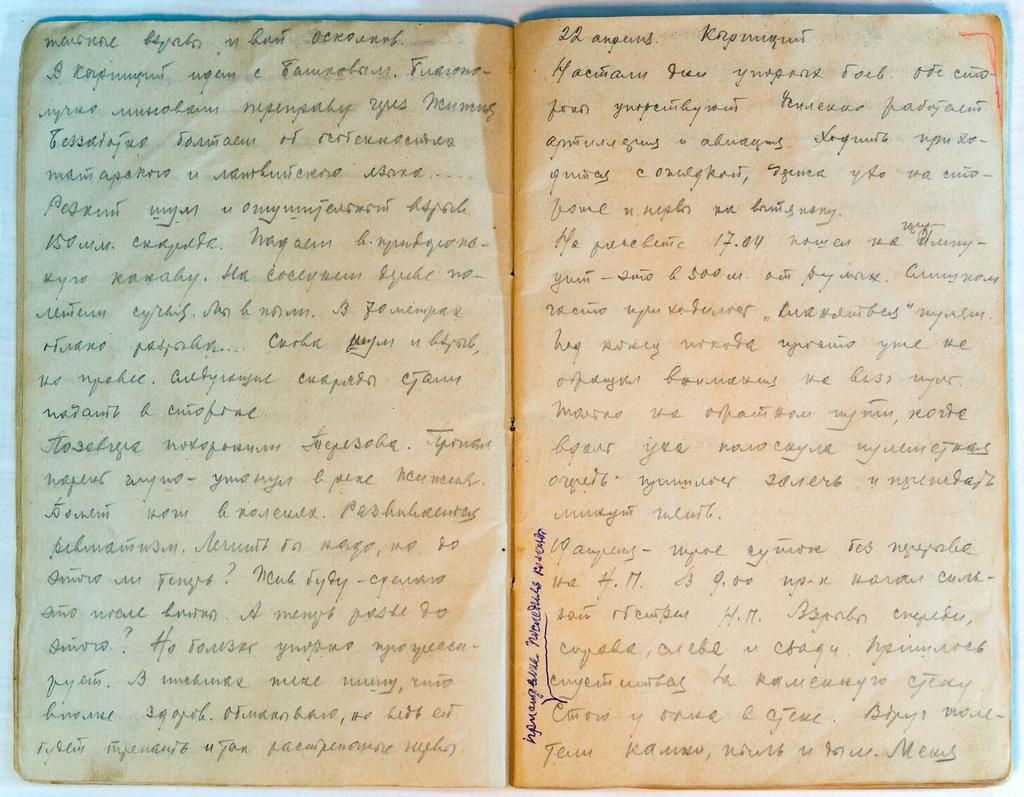 тельные взрывы и вой осколков.
В Кырпицит идем с Башковым. Благопо-
лучно миновали переправу через Жижия
Беззаботно болтаем об особенностях
татарского и латвийского языка....
Резкий шум и оглушительный взрыв
150 мм. снаряда. Падаем в придорож-
ную канаву. На соседнем дереве по-
летели сучья. Мы в пыли. В 70 метрах
облако разрыва... Снова шум и взрыв,
но правее. Следующие снаряды стали
падать в стороне.
Позавчера похоронили Терезова. Пропал
парень глупо - утонул в реке Жижия.
Болят ноги в коленях. Развивается
ревматизм. Лечить бы надо, но до
этого ли теперь? Жив буду - сделаю
это после войны. А теперь разве до
этого? Но болезнь упорно прогресси-
рует. В письмах тоже пишу, что
вполне здоров. Обманываю, но ведь ей
будет трепать и так растрепанные нервы.
22 апреля. Кырпицит
Настали дни упорных боев. Обе сто-
роны упорствуют Усиленно работает
артиллерия и авиация. Ходить прихо-
дится с оглядкой, держа ухо на сто-
роже и нервы на вытяжку.
На рассвете 17.04 пошел на
- это в 500 м. от румын. Слишком
часто приходилось „кланяться" пулям.
Под конец похода просто уже не
обращал внимания на визг пуль.
Только на обратном пути, когда
возле уха полоснула пулеметная
очередь пришлось залечь и переждать
минут шесть.
апреля - трое суток без перерыва
на Н.П. В 9.00 пр-к начал силь-
ный обстрел Н.П. Взрывы спереди,
справа, слева и сзади. Пришлось
спуститься за каменную стену.
Стою у окна в стене. Вдруг поле-
тели камни, пыль и дым. Меня
последняя